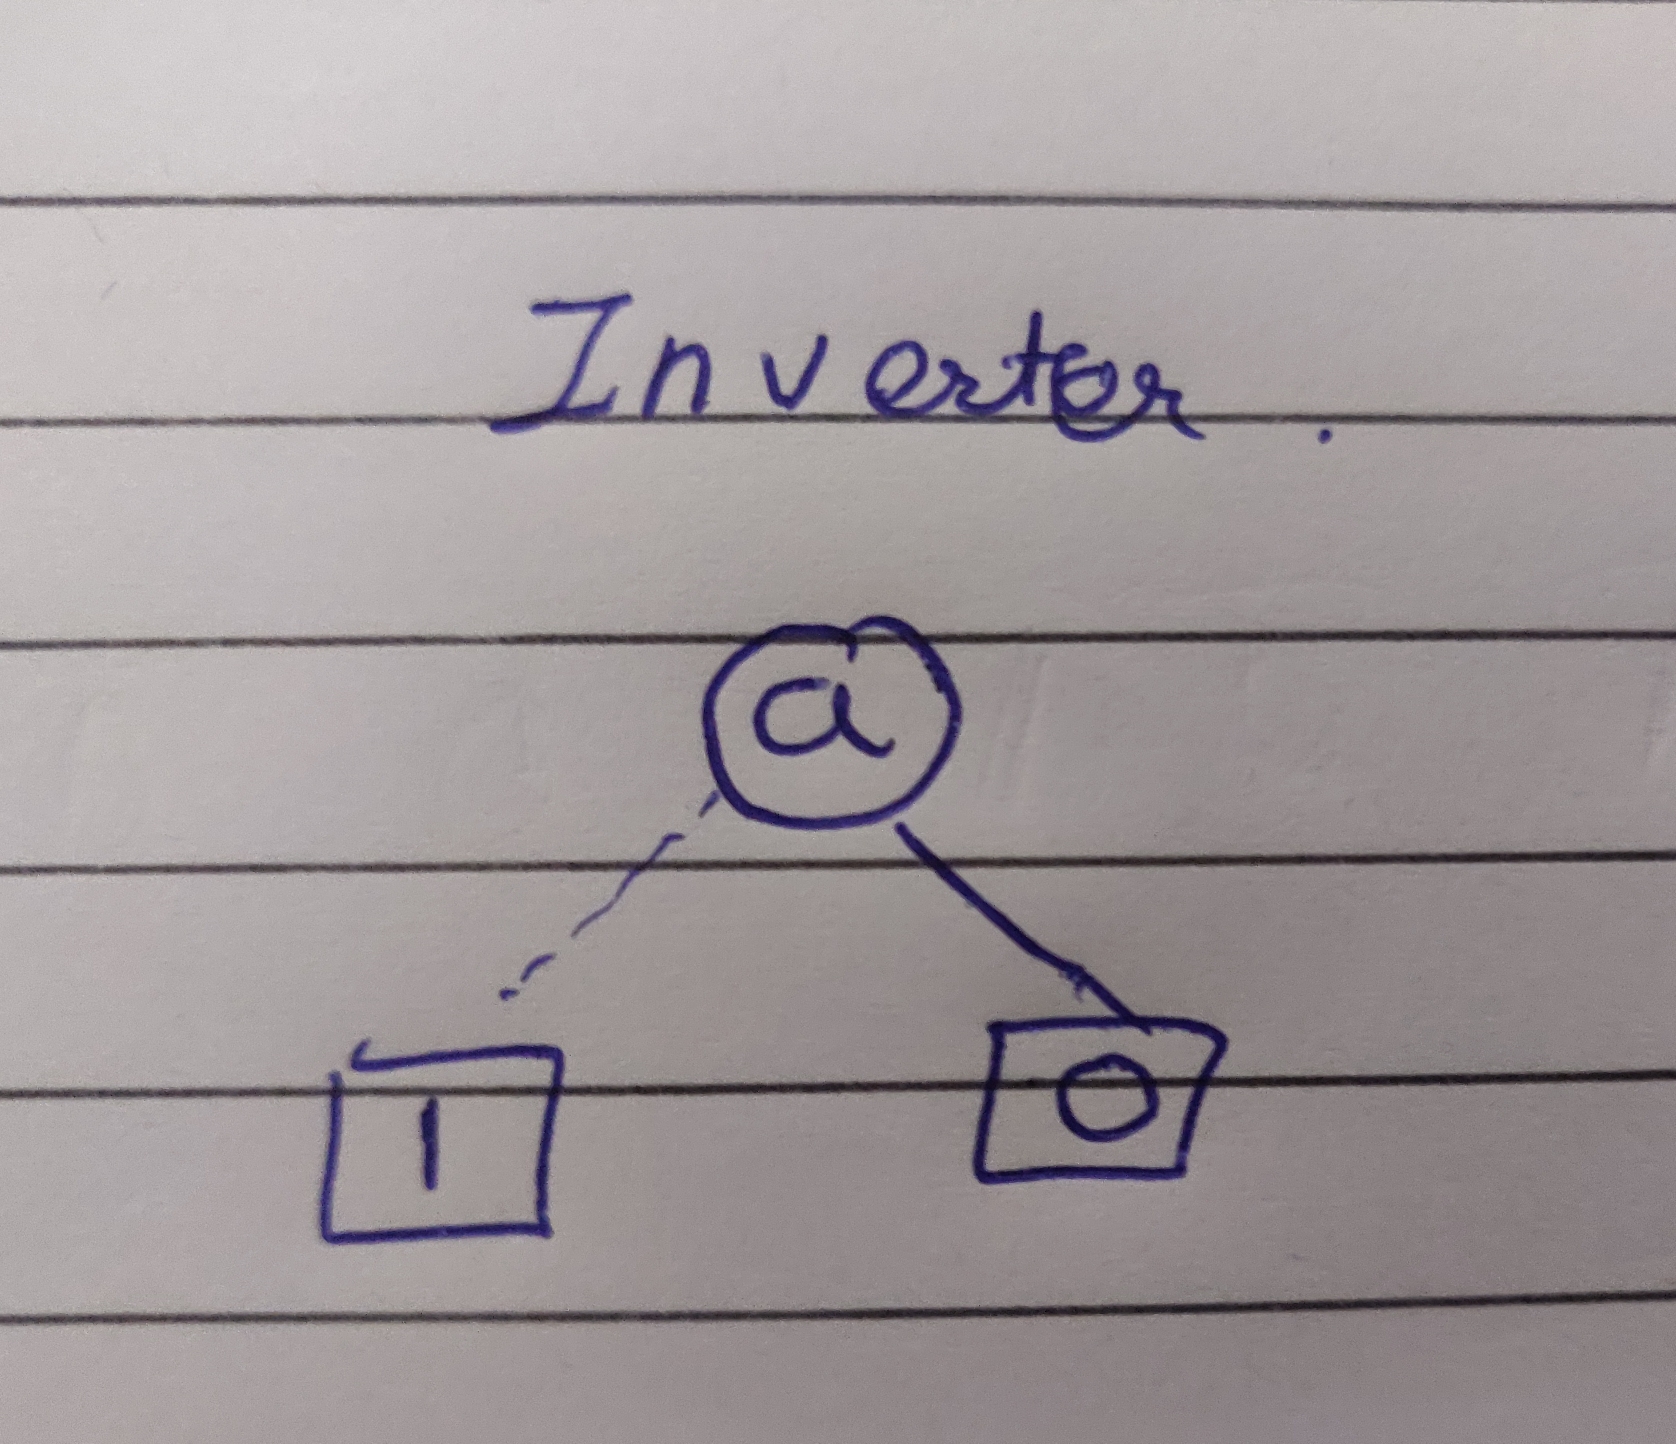 Inverter .
a
1 0